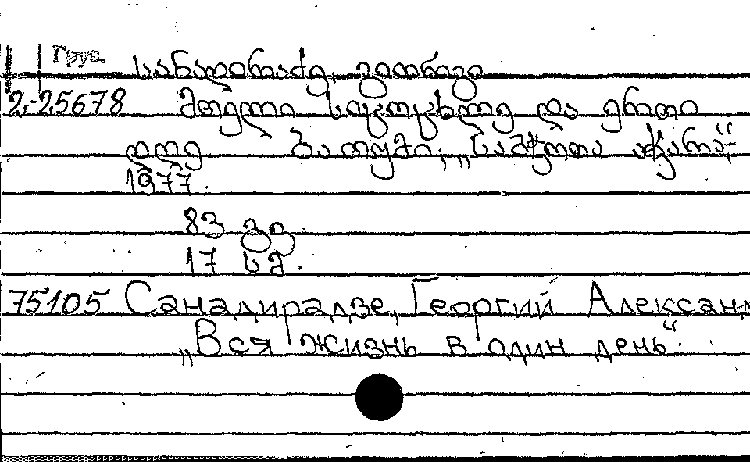 Груз.
სანადირაძე, გიორგი
2-25678 მთელი სიცოცხლე და ერთი
დღე ბათუმი, „საბჭოთა აჭარა“,
1977.
83 გვ
17 სმ.
75105 Санадирадзе, Георгий Александ
„Вся жизнь в один день“.